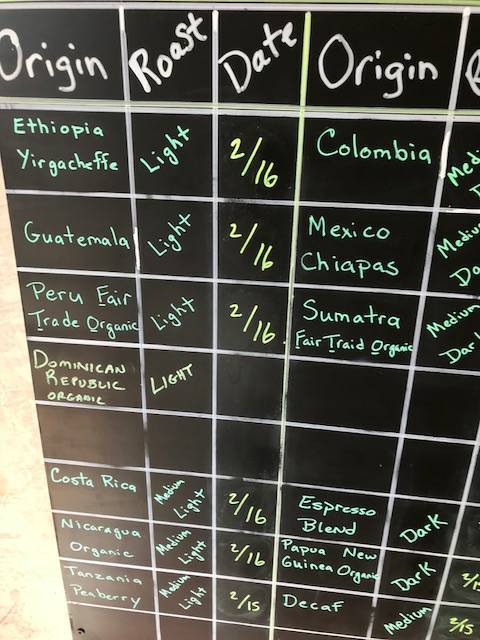 Origin Roast Date Origin
Ethiopia
Yirgacheffe Light 2/16 Colombia
Guatemala Light 2/16 Mexico
Chiapas
Peru Fair
Trade Organic Light 2/16 Sumatra
Fair Traid Organic Medium
DOMINICAN
REPUBLIC
ORGANIC LIGHT
Costa Rica Medium
Light 2/16 Espresso
Blend Dark
Nicaragua
Organic Medium
Light 2/16 Papua New
Guinea Organic Dark
Tanzania
Peaberry Medium
Light 2/15 Decaf Medium 2/15